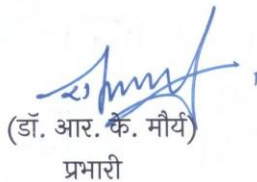 (डॉ. आर. के. मौर्य)
प्रभारी